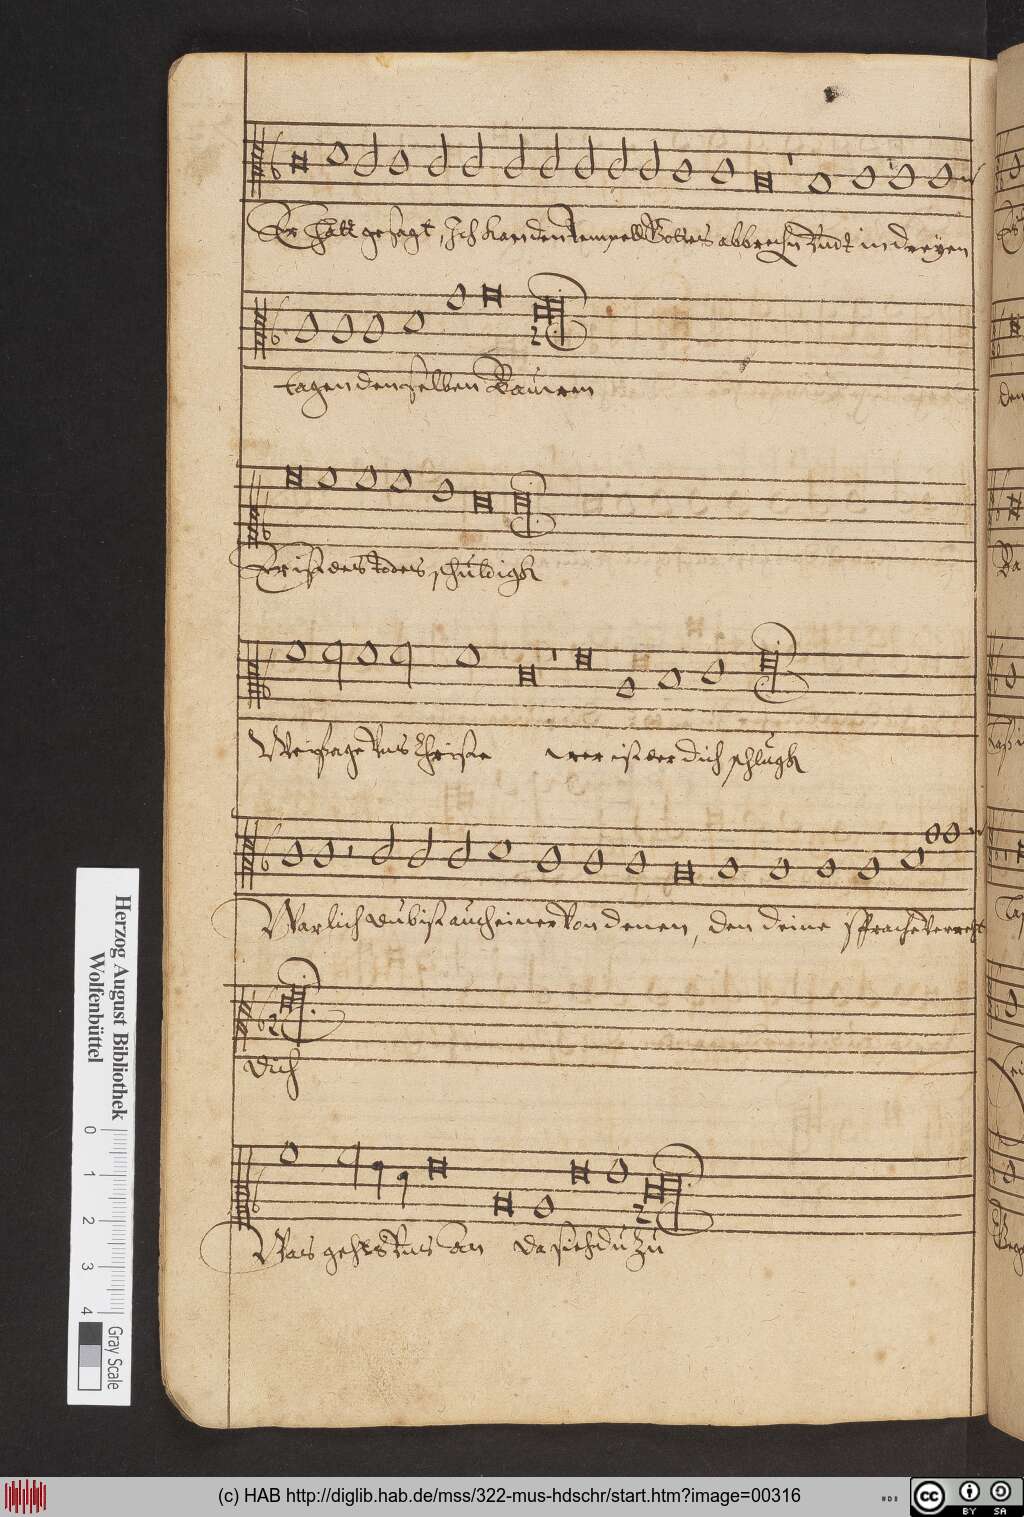 Er hatt gesagt, Ich kan den Tempell Gottes abbrechn Vndt in dreyen
tagen denselben Bauwen
Er ist des Todes schüldigk
Weissage Vns Christe wer ist der dich schlugk
Warlich du bist auch einer Von denen, den deine sprache Verreht
dich
Was gehts Vns an da siehe dü zü
Herzog August Bibliothek
Wolfenbüttel
0 1 2 3 4
Gray Scale
(c) HAB http://diglib.hab.de/mss/322-mus-hdschr/start.htm?image=00316
cc BY SA